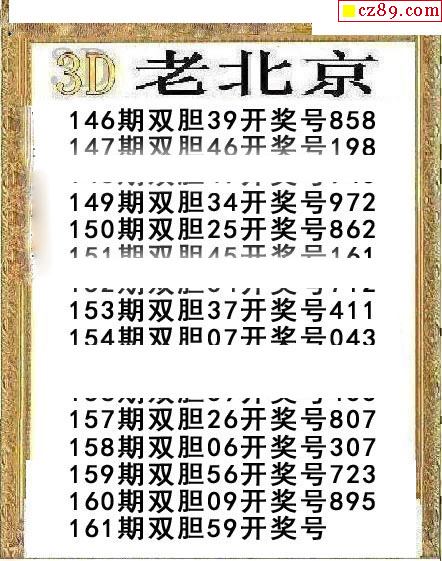 cz89.com
3D 老北京
146期双胆39开奖号858
147期双胆46开奖号198
149期双胆34开奖号972
150期双胆25开奖号862
151期双胆45开奖号161
期双胆 开奖号712
153期双胆37开奖号411
154期双胆07开奖号043
期双胆 开奖号
157期双胆26开奖号807
158期双胆06开奖号307
159期双胆56开奖号723
160期双胆09开奖号895
161期双胆59开奖号